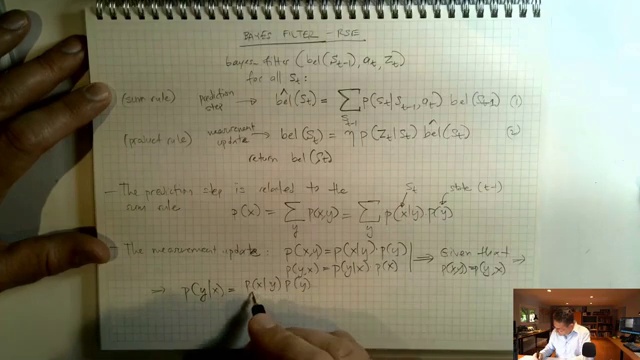 BAYES FILTER - RSE
bayes filter (bel(S_{t-1}), a_t, Z_t)
for all S_t:
(sum rule) prediction step → bel̂(S_t) = ∑_{S_{t-1}} p(S_t|S_{t-1}, a_t) bel(S_{t-1}) (1)
(product rule) measurement update → bel(S_t) = η p(Z_t|S_t) bel̂(S_t) (2)
return bel(S_t)
- The prediction step is related to the S_t state (t-1)
sum rule p(x) = ∑_y p(x,y) = ∑_y p(x|y) p(y)
- The measurement update: p(x,y) = p(x|y)·p(y) ⟹ Given that ⟹
p(y,x) = p(y|x) p(x) p(x,y) = p(y,x)
⟹ p(y|x) = p(x|y) p(y)